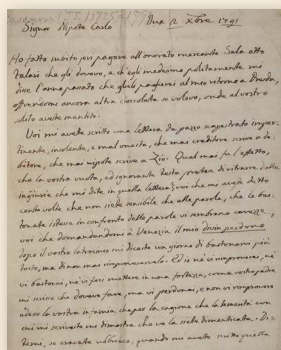 Signor Nipote Carlo Dux 2 Xbre 1791
Ho fatto subito jeri pagare all'onorato mercante Sala otto
talari che gli dovevo, e ch'egli medesimo politamente mi
dice l'anno passato che gli pagherei al mio ritorno a Dresda,
offrendomi ancora altra cioccolata se volevo, onde al vostro
solito avete mentito.
Voi mi avete scritto una lettera da pazzo suggestato imper-
tinente, insolente, e mal creato, che mai creditore scrive a de-
bitore, che mai nipote scrive a Zio. Qual mai fu l'effetto,
che la vostra vuota, ed ignorante testa, pretese di ritrarre dalle
ingiurie che mi dite in quella lettera? voi che mi avete detto
cento volte che non siete sensibile che alle parole, che le bas-
tonate istesse in confronto delle parole vi sembrano carezze,
voi che domandandomi a Venezia il mio divin perdono
dopo il vostro latrocinio mi diceste un giorno di bastonarvi più
tosto, ma di non mai rimproverarvelo. Ed io nè vi rimproverai, nè
vi bastonai, nè vi feci mettere in una fortezza, come vostro padre
mi scrisse che dovevo fare, ma vi perdonai, e non vi rimprovero
adesso la vostra in
che mi scriveste mi dimostra che ve la siete dimenticata. Di-
temi, se eravate ubbriaco, quando me avete scritto quella